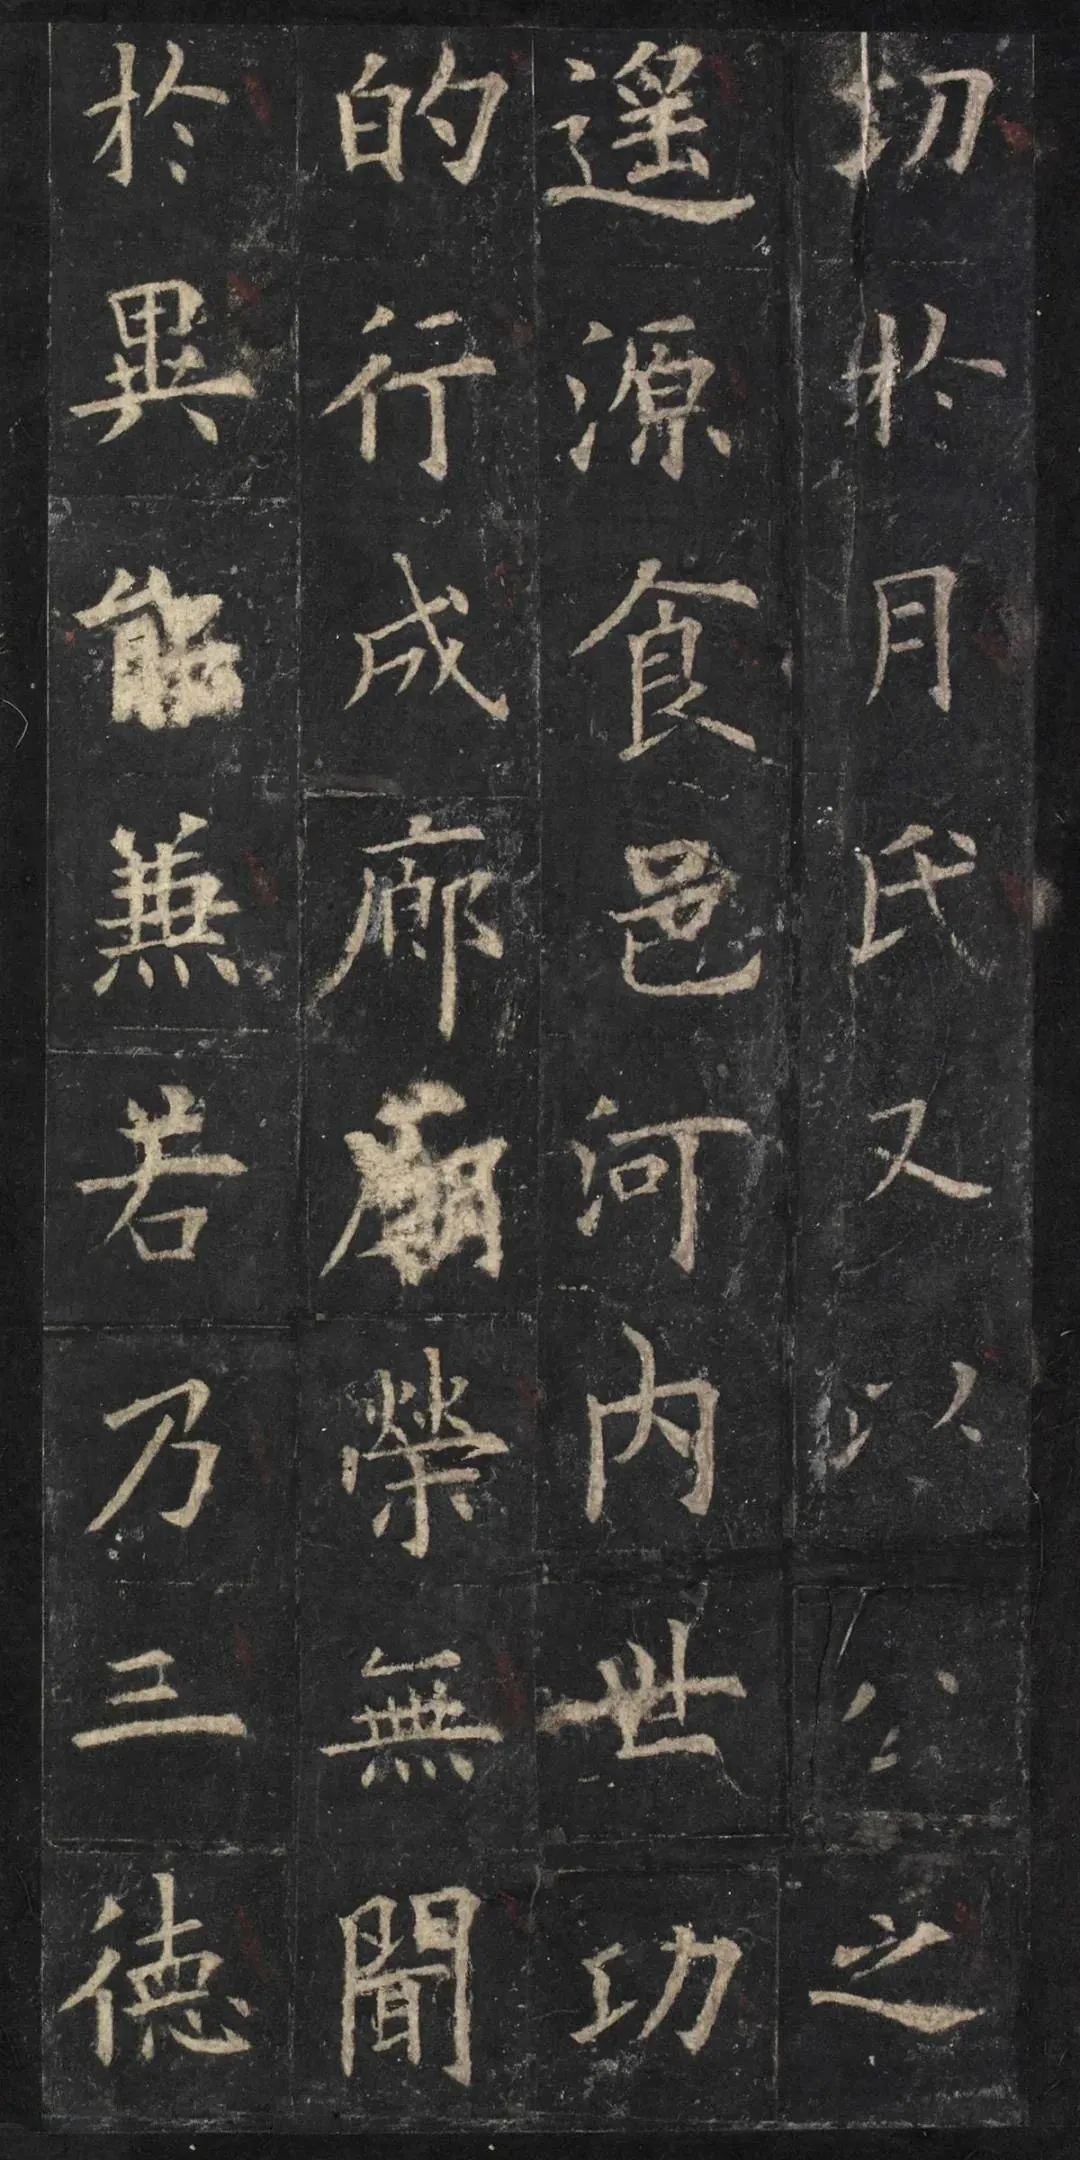 切於月氏又以公之
遙源食邑河内世功
的行成廊廟榮無聞
於異能兼若乃三德